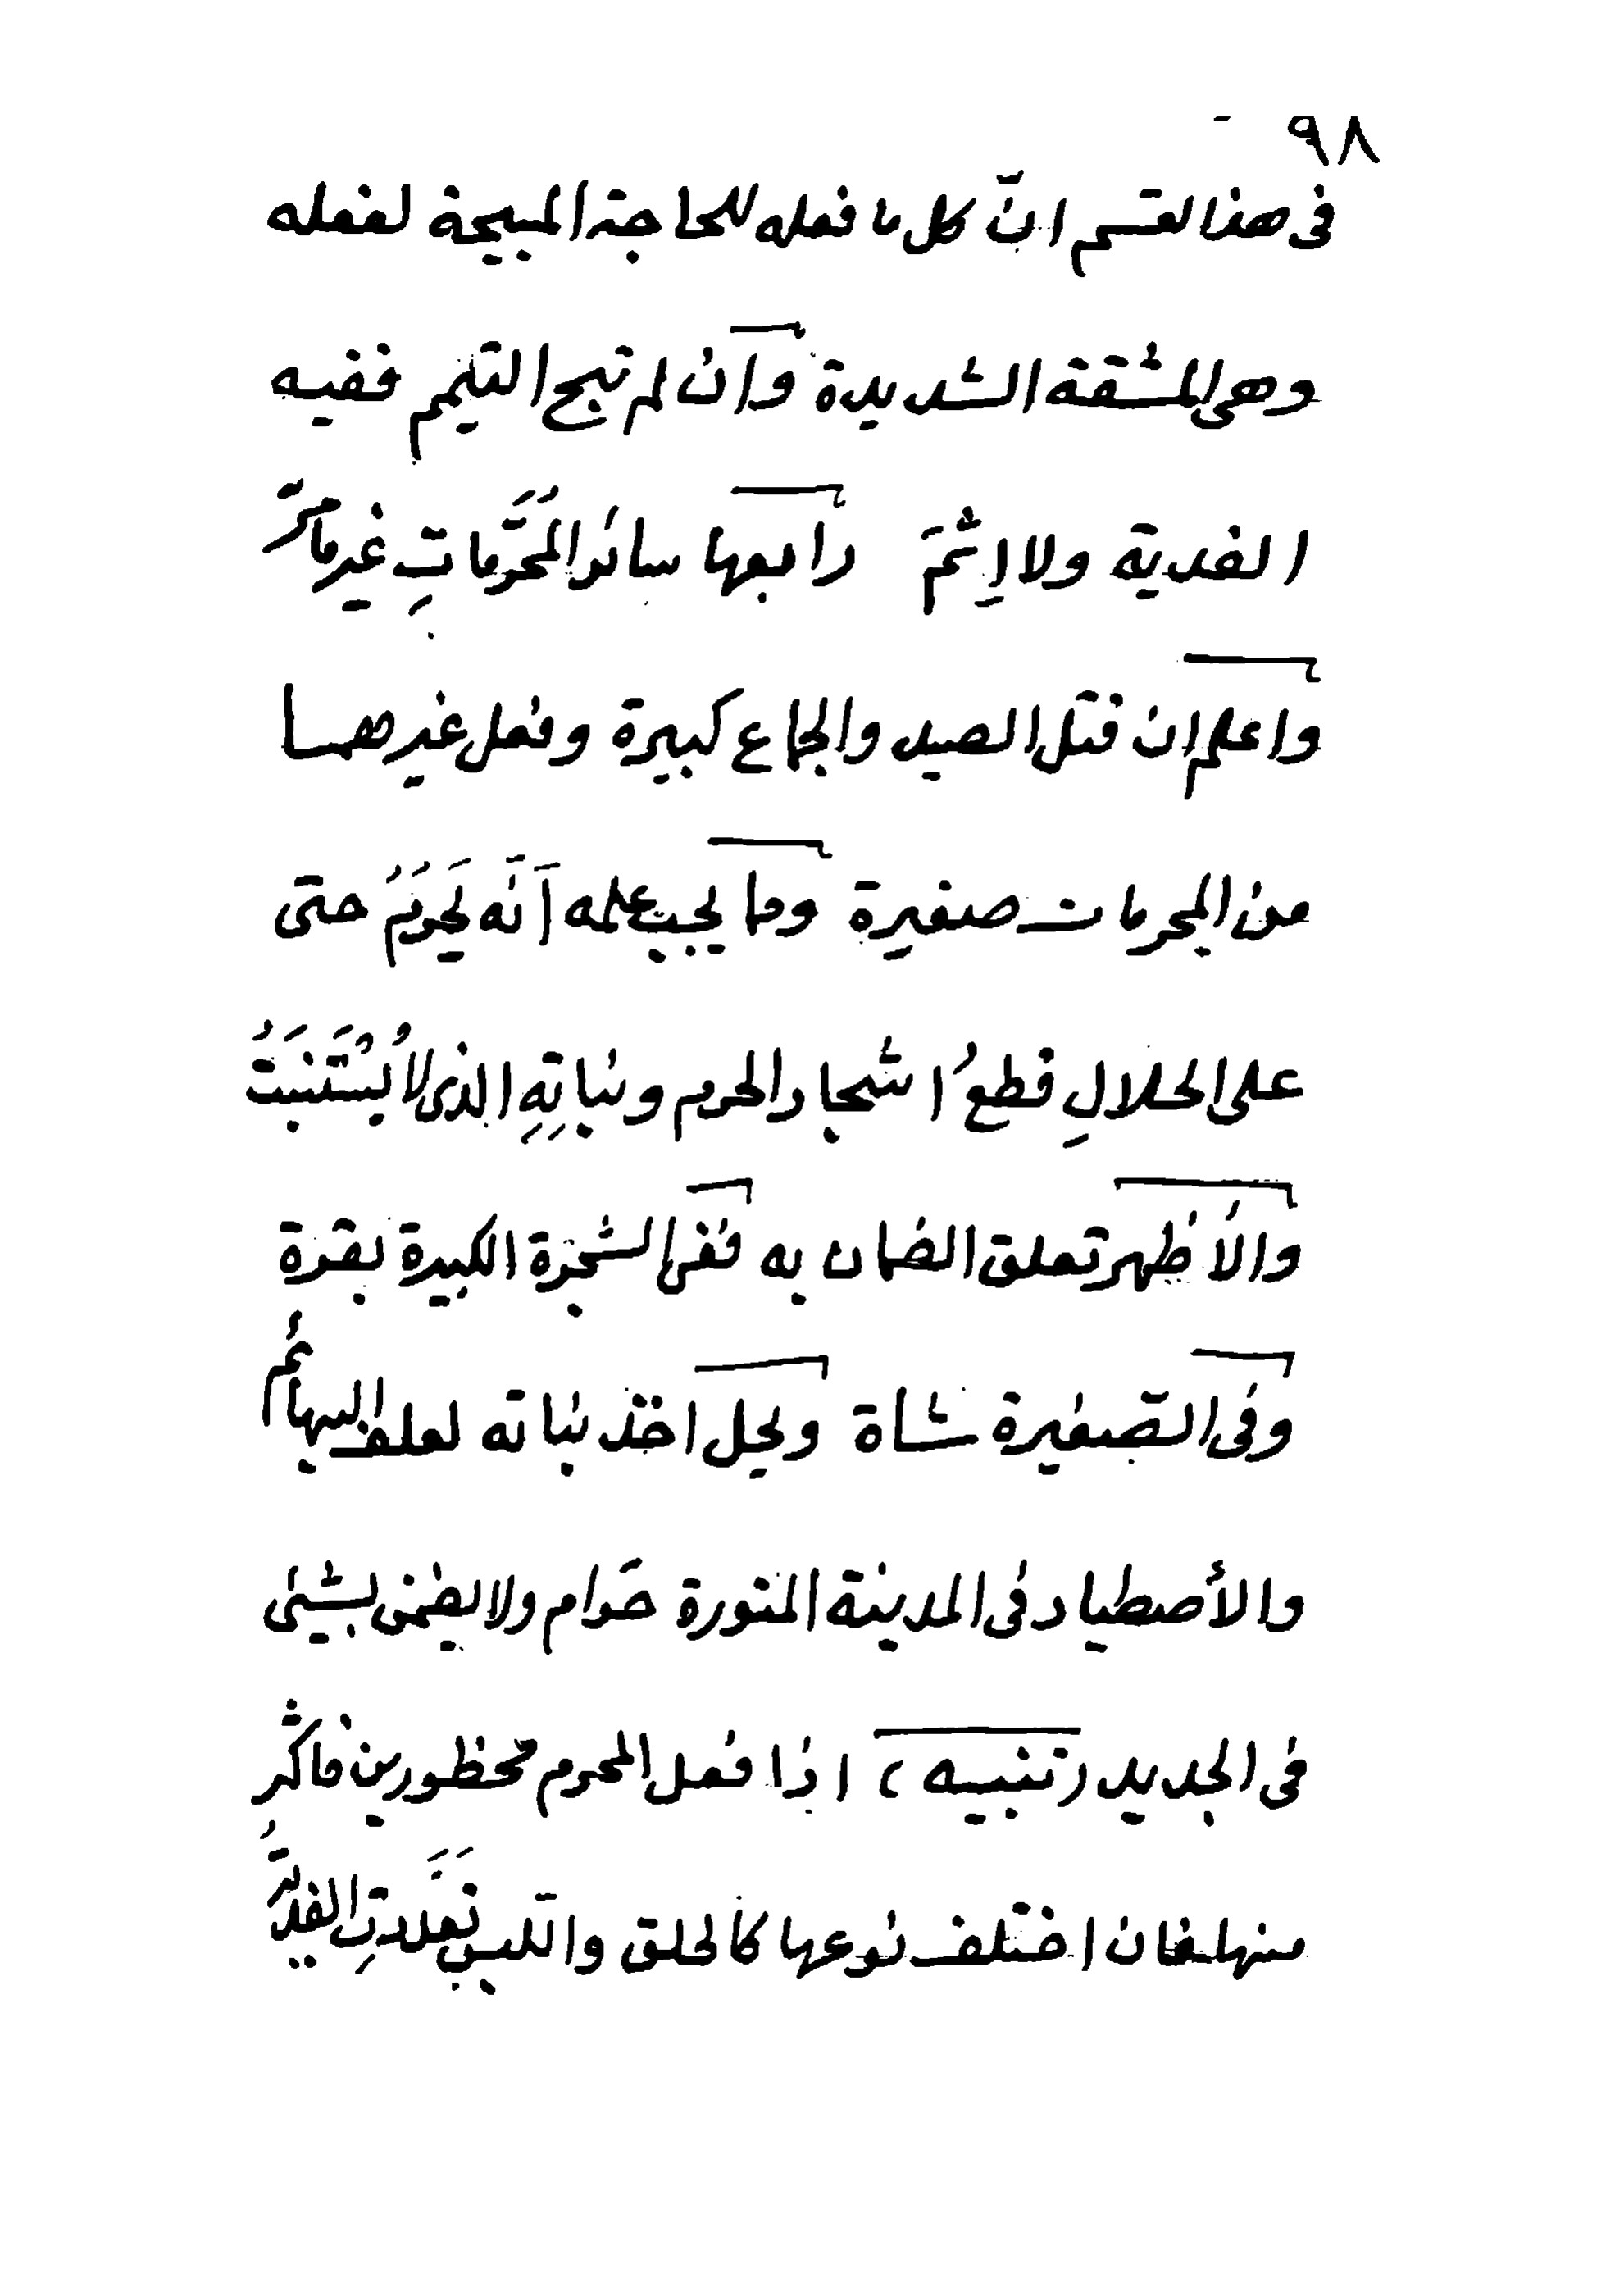 ٩٨
فى هذا القسم انّ كل ما فعله للحاجة المبيحة لفعله
وهى المشقة الشديدة وان لم تبح التيمم ففيه
الفدية ولا إثمَ رابعها سائر المُحَرَّماتِ غير ما مرّ
واعلم ان قتل الصيد والجماع كبيرة وفعل غيرهما
من المحرمات صغيرة وما يجب علمه اَنّه يَحرُمُ حتى
على الحلالِ قطعُ اشجار الحرم ونباتِهِ الذى لا يُسْتَنبَتُ
والاَظهر تعلق الضمان به ففى الشجرة الكبيرة بقرة
وفى الصغيرة شاة ويحل اخذ نباته لعلف البهائم
والأصطياد فى المدينة المنورة حَرام ولا يضمن بشيئ
فى الجديد (تنبيه) اذا فعل المحرم محظورين فاكثر
منها فان اختلف نوعها كالحلق واللبس تعَدَّدتِ الفديةُ